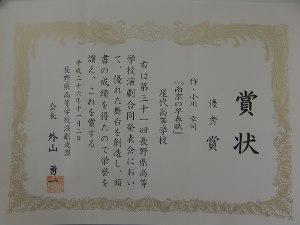 賞状
優秀賞
作・小川幸司
『南京の早春賦』
屋代高等学校
右は第三十一回長野県高等
学校演劇合同発表会におい
て、優れた舞台を創造し、頭
書の成績を得たので栄誉を
讃え、これを賞する
平成二十六年十一月二日
長野県高等学校演劇連盟
会長 外山勇一